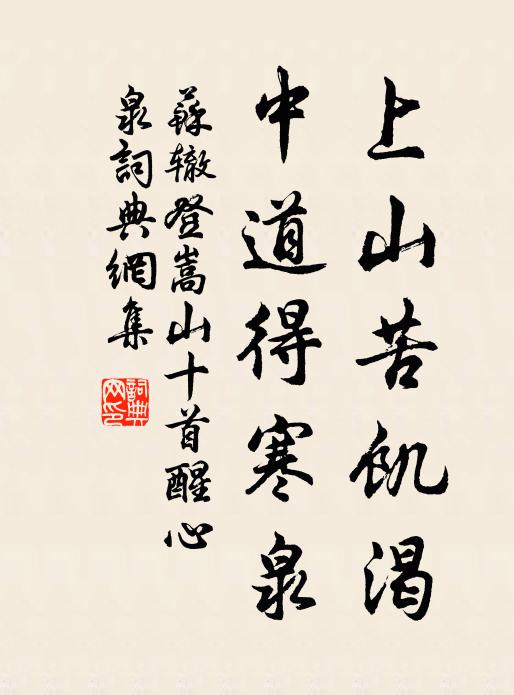 上山苦飢渴
中道得寒泉
蘇辙登嵩山十首醒心
泉詞典網集
詞典网印